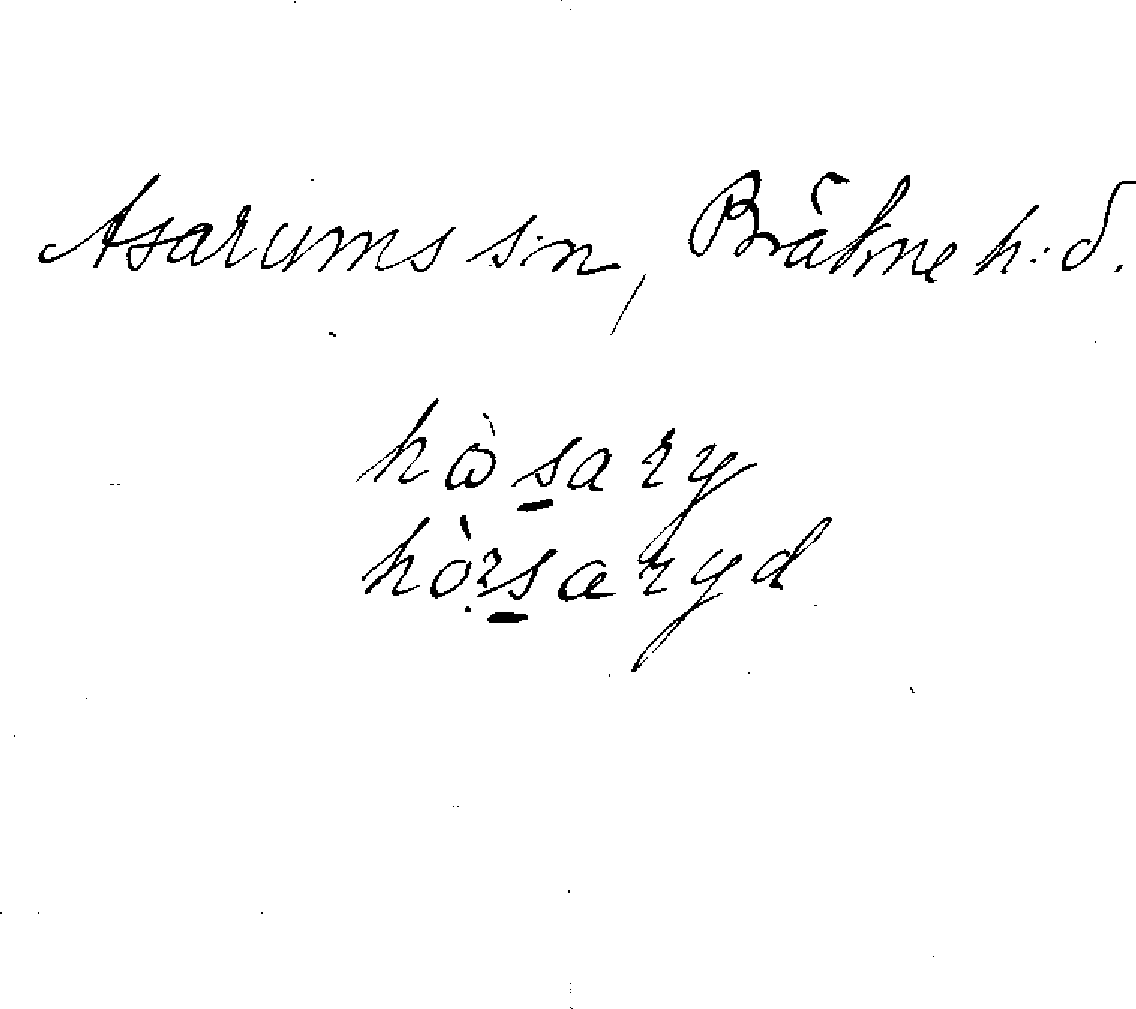 Asarums s:n, Bräkne h:d.
hòsary
hòrsaryd